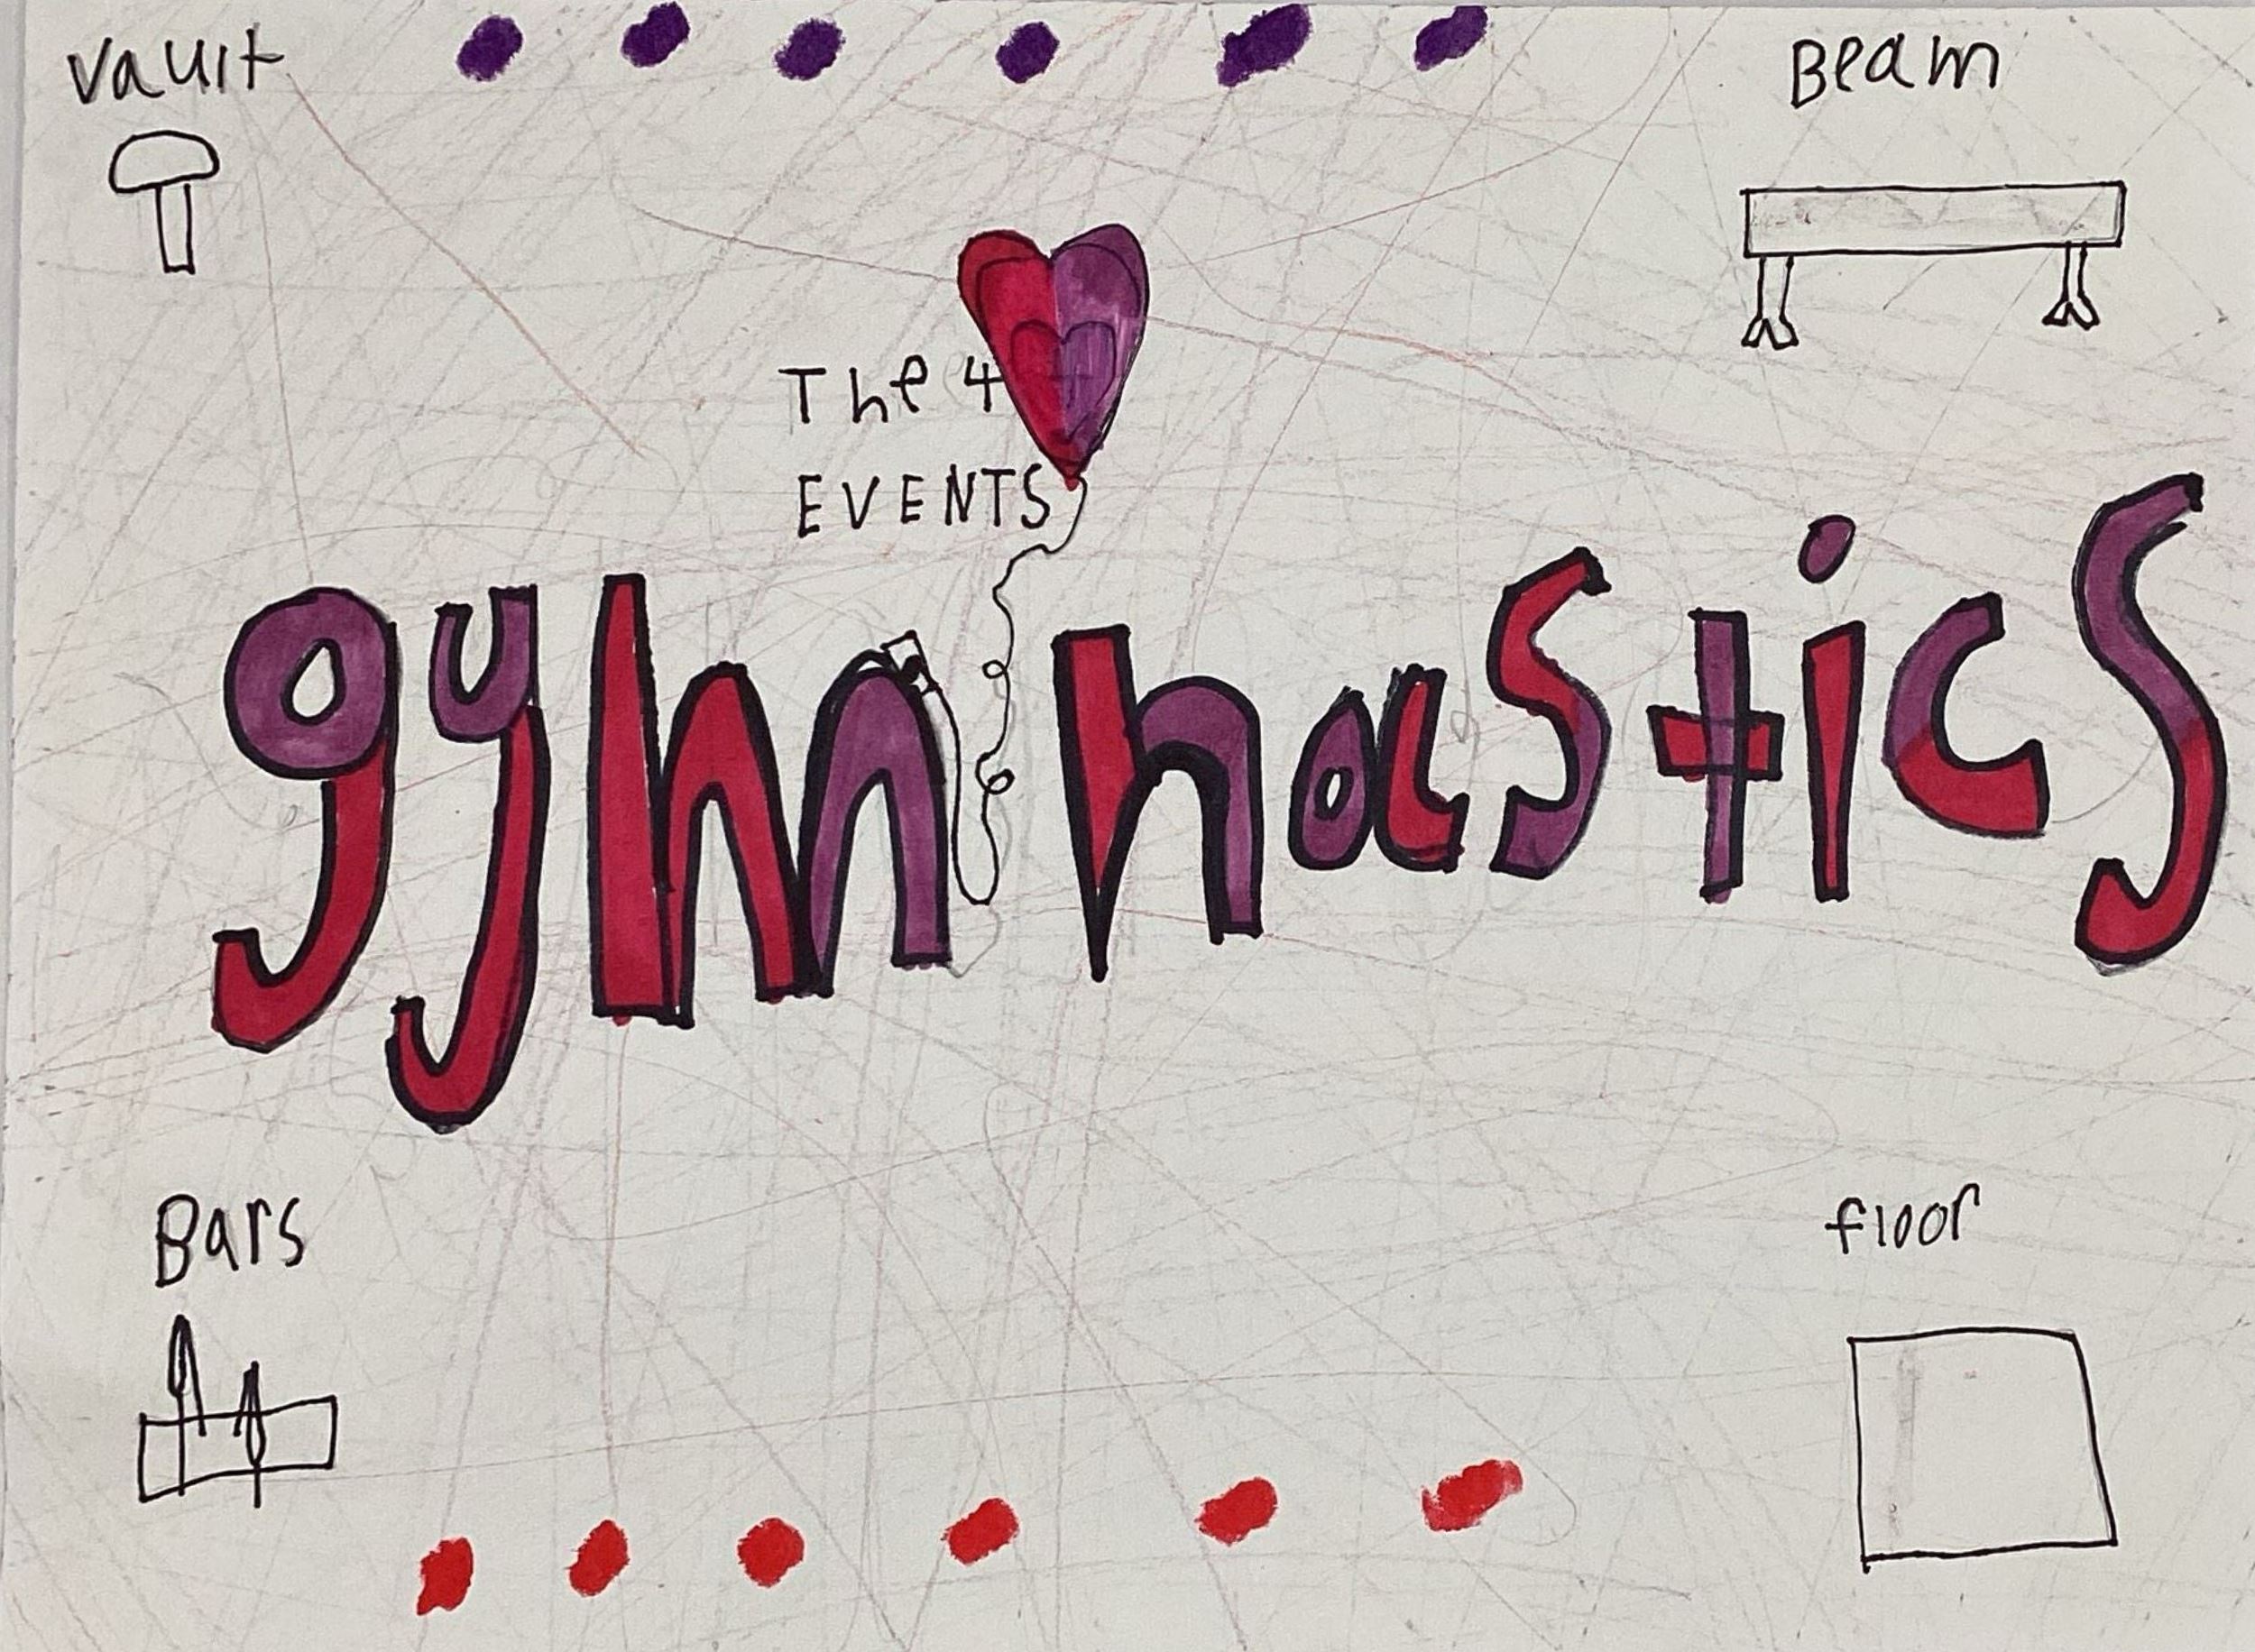 vault
Beam
The 4
EVENTS
gymnastics
Bars
floor